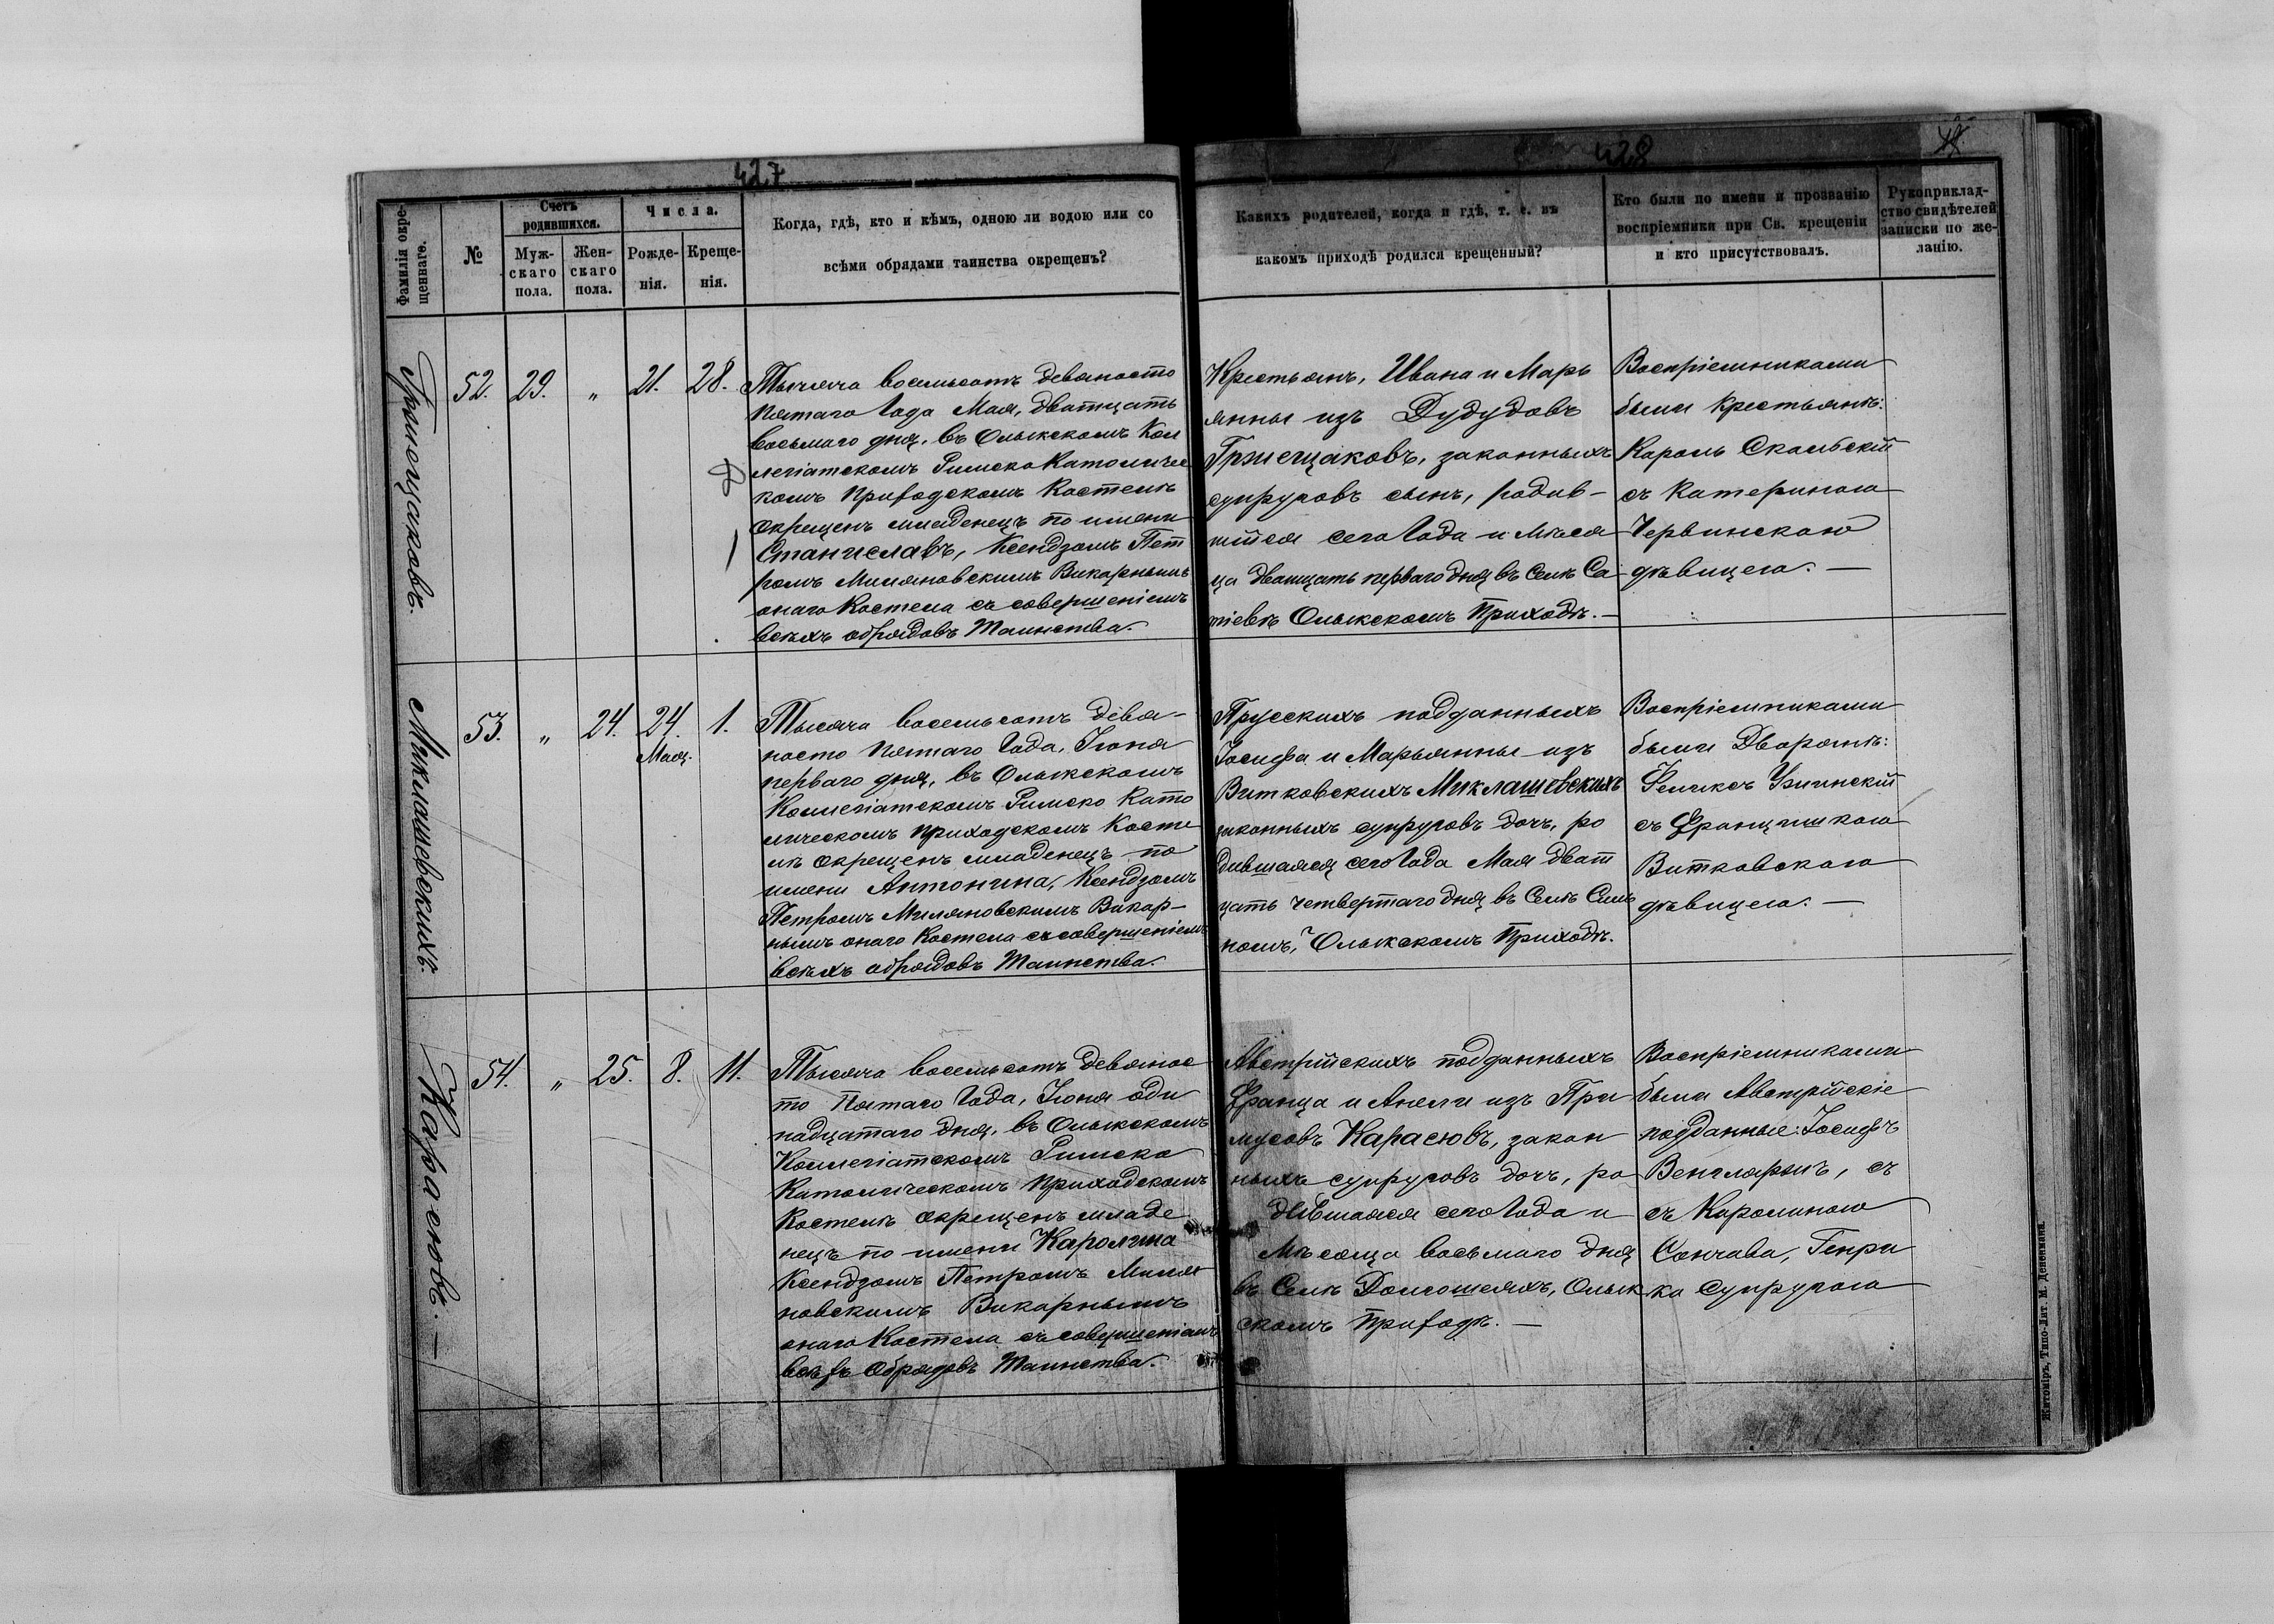 427
Фамилія окре-
щеннаго.
№
Счетъ
родившихся.
Муж-
скаго
пола.
Жен-
скаго
пола.
Числа.
Рожде-
нія.
Креще-
нія.
Когда, гдѣ, кто и кѣмъ, одною ли водою или со
всѣми обрядами таинства окрещенъ?
52. 29. „ 21. 28.
Тысяча восемьсотъ девяносто
Пятаго Года Мая, дватцать
восьмаго дня, въ Олыкскомъ Кол
легіатскомъ Римско Католичес
комъ Приходскомъ Костелѣ
окрещенъ младенецъ по имени
Станиславъ, Ксендзомъ Пет
ромъ Миляновскимъ Викарнымъ
онаго Костела съ совершеніемъ
всѣхъ обрядовъ Таинства.
Миклашевскихъ.
53. „ 24. 24. 1.
Мая.
Тысяча восемьсотъ девя-
носто Пятаго Года, Іюня
перваго дня, въ Олыкскомъ
Коллегіатскомъ Римско Като
лическомъ Приходскомъ Косте
лѣ окрещенъ младенецъ по
имени Антонина, Ксендзомъ
Петромъ Миляновскимъ Викар-
нымъ онаго Костела съ совершеніемъ
всѣхъ обрядовъ Таинства.
Карасювъ. —
54. „ 25. 8. 11.
Тысяча восемьсотъ девянос
то Пятаго Года, Іюня оди
надцатаго дня, въ Олыкскомъ
Коллегіатскомъ Римско
Католическомъ Приходскомъ
Костелѣ окрещенъ младе
нецъ по имени Каролина
Ксендзомъ Петромъ Миля
новскимъ Викарнымъ
онаго Костела съ совершеніемъ
всѣхъ Обрядовъ Таинства.
428
Какихъ родителей, когда и гдѣ, т. е. въ
какомъ приходѣ родился крещенный?
Кто были по имени и прозванію
воспріемники при Св. крещеніи
и кто присутствовалъ.
Рукоприклад-
ство свидѣтелей
записки по же-
ланію.
Крестьянъ, Ивана и Марь
янны изъ Дудудовъ
Гржещаковъ, законныхъ
супруговъ сынъ, родив-
шійся сего Года и Мѣся
ца дватцать перваго дня въ Селѣ Са
піевѣ Олыкскомъ Приходѣ. —
Воспріемниками
были Крестьянѣ:
Кароль Скальбскій
съ Катериною
Червинскою
дѣвицею. —
Прусскихъ подданныхъ
Іосифа и Марьянны изъ
Витковскихъ Миклашевскихъ
законныхъ супруговъ дочь, ро
дившаяся сего Года Мая дват
цать четвертаго дня въ Селѣ Силь
номъ, Олыкскомъ Приходѣ.
Воспріемниками
были Дворянѣ:
съ Францишкою
Витковскою
дѣвицею. —
Австрійскихъ подданныхъ
Франца и Анели изъ При
мусовъ Карасювъ, закон
ныхъ супруговъ дочь, ро
дившаяся сего Года и
Мѣсяца восьмаго дня
въ Селѣ Долгошеяхъ, Олык
скомъ Приходѣ. —
Воспріемниками
были Австрійскіе
подданные: Іосифъ
Венгларжъ, съ
съ Каролиною
Сончава, Генри
ка Супругою
Житоміръ, Типо-Лит. М. Дененмана.